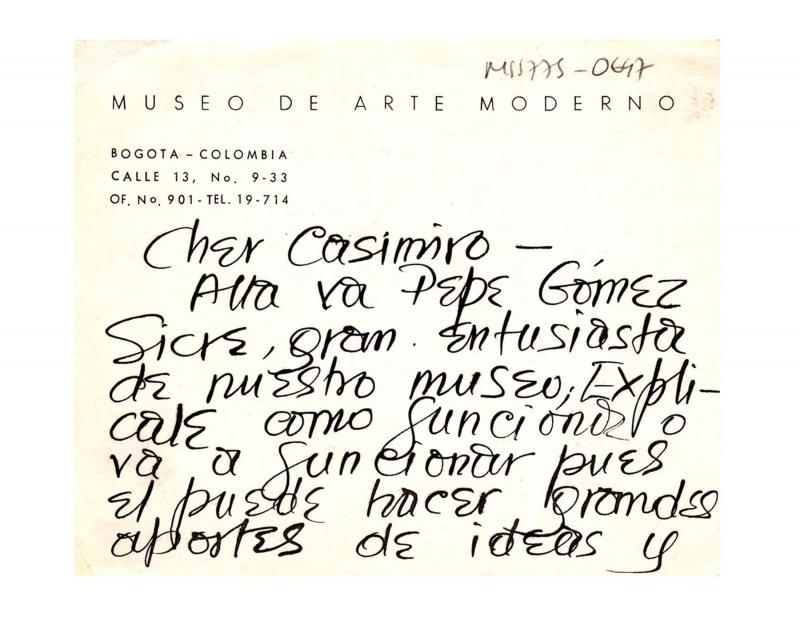 MSS775-0647
MUSEO DE ARTE MODERNO
BOGOTA - COLOMBIA
CALLE 13, No. 9-33
OF. No. 901 - TEL. 19-714
Cher Casimiro —
Alla va Pepe Gómez
Sicre, gran entusiasta
de nuestro museo; Expli-
cale como funciona o
va a funcionar pues
el puede hacer grandes
aportes de ideas y